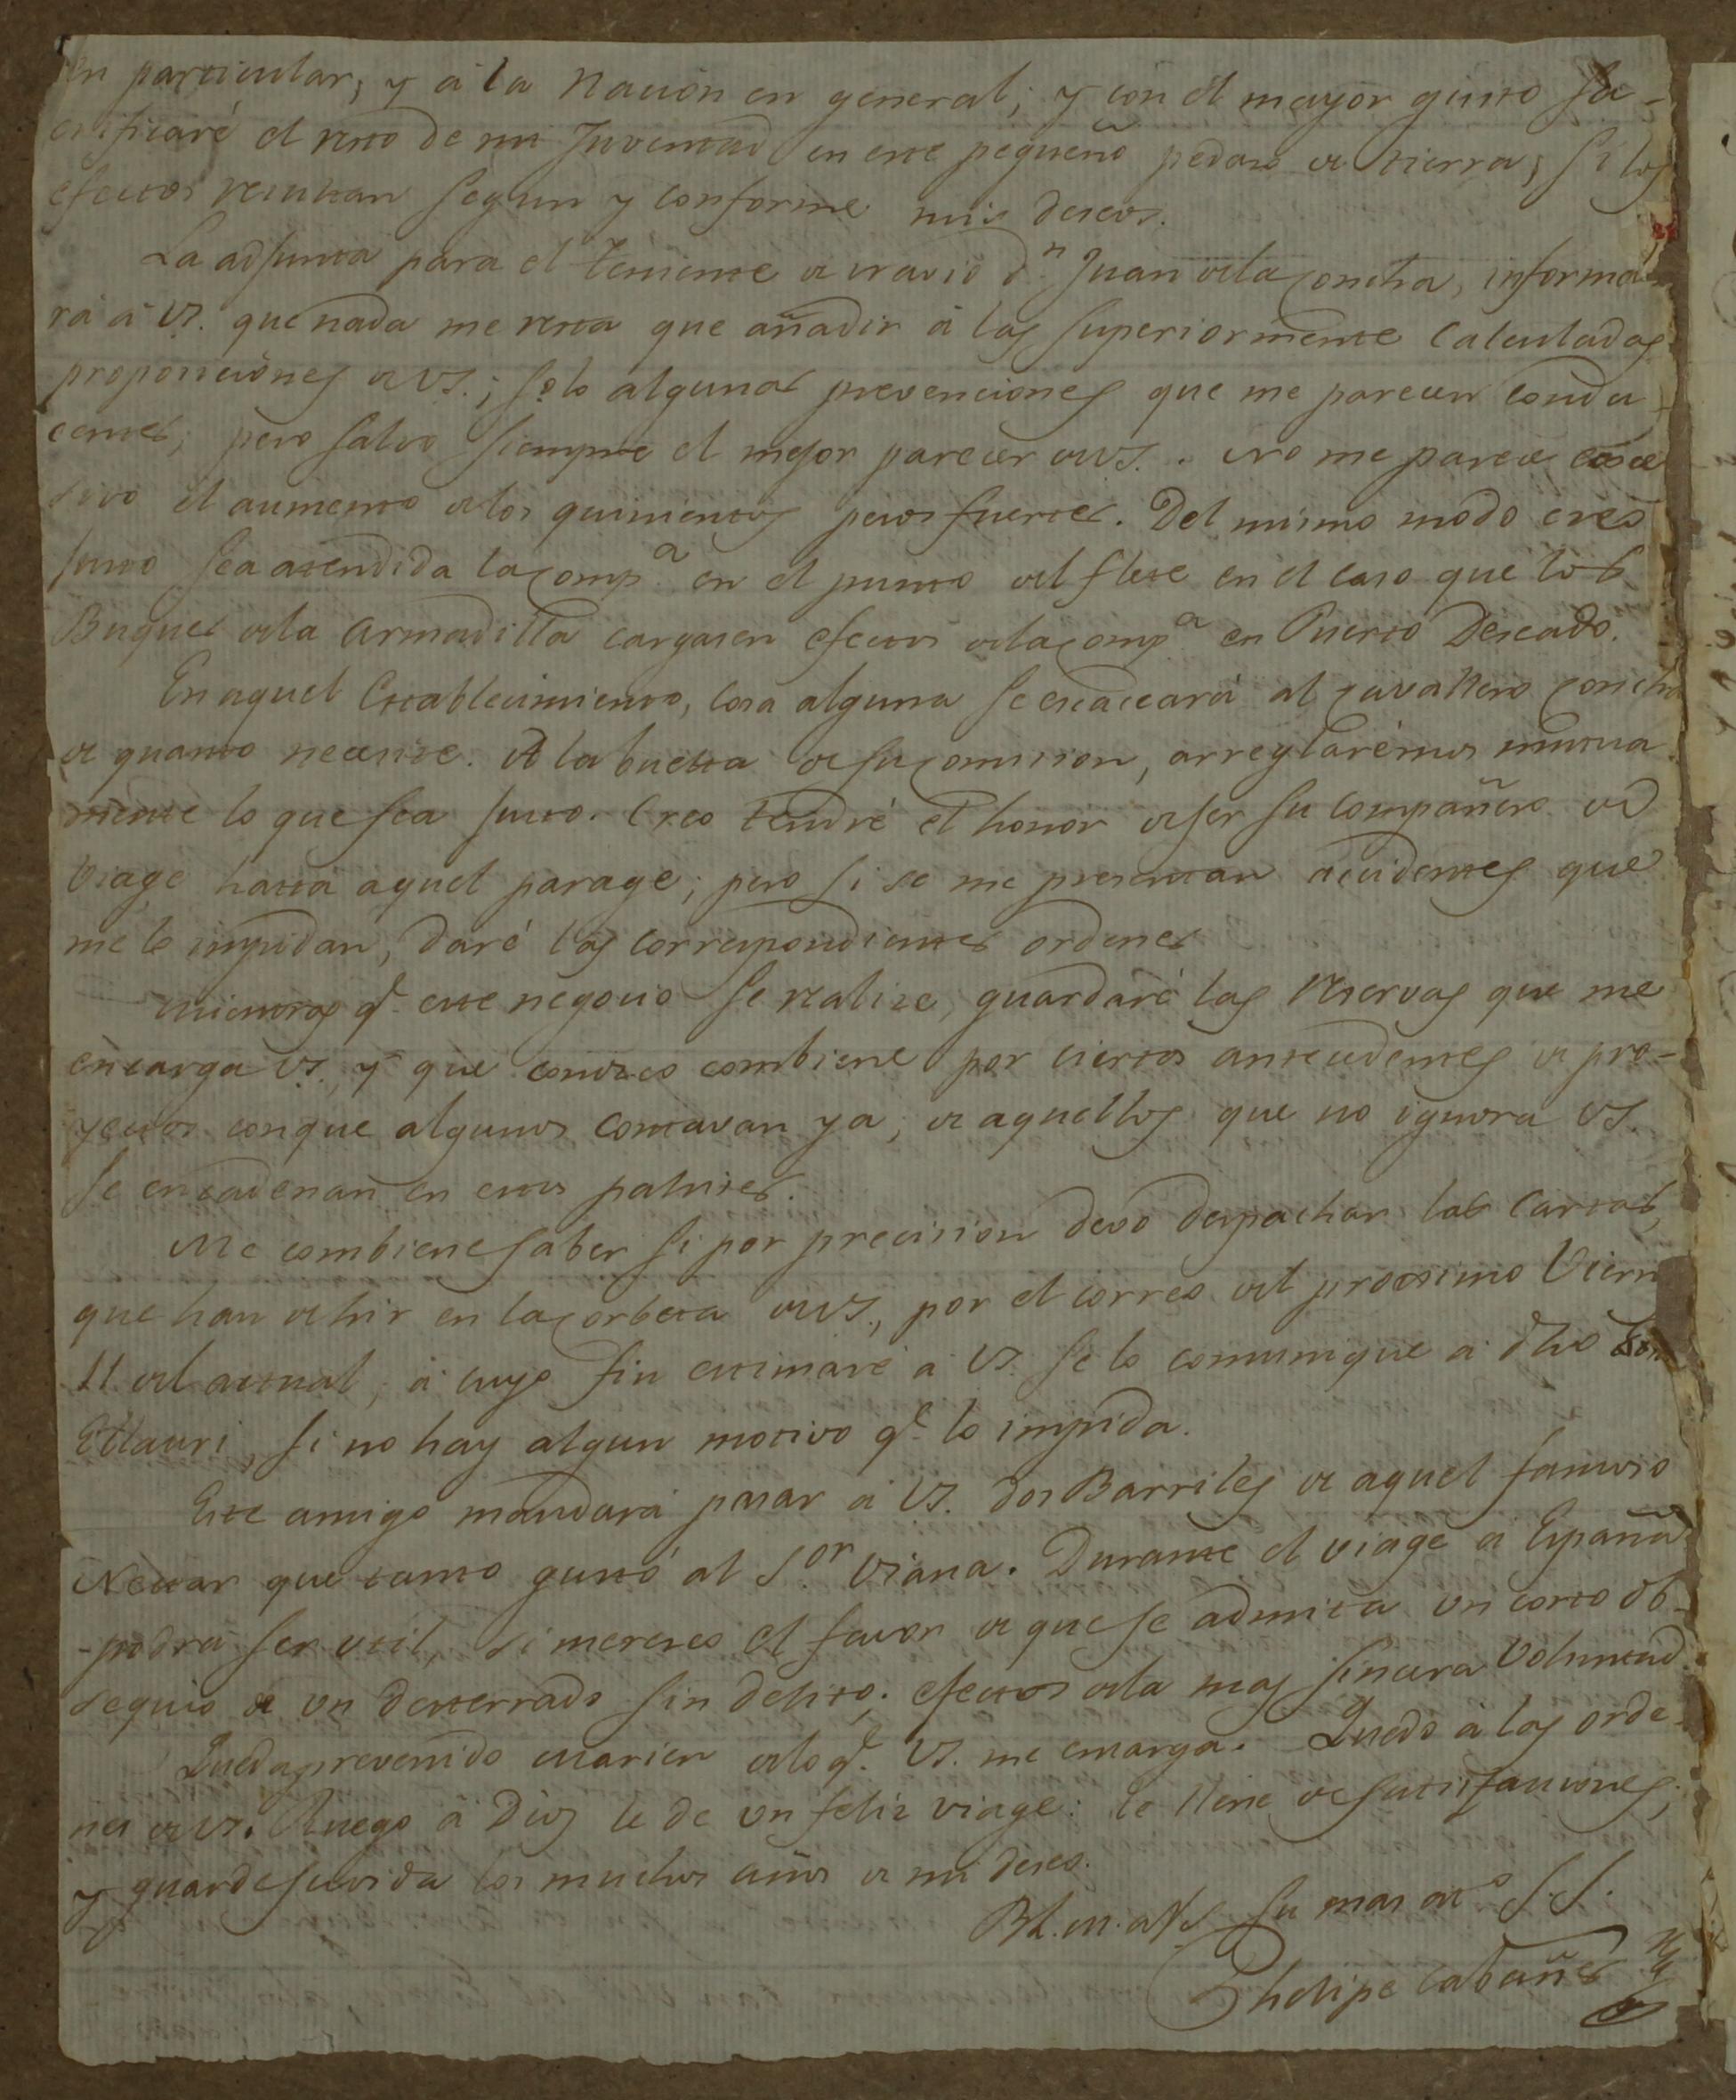 en particular, y á la Nacion en general; y con el mayor gusto sa-
crificaré el resto de mi Juventud en este pequeño pedaso de tierra, si los
efectos resultan segun y conforme mis deseos.
La adjunta para el teniente de navio Dn. Juan de la Concha, informa
rá á VS. que nada me resta que añadir á las superiormente calculadas
proposiciones de VS.; solo algunas prevenciones que me parecen condu
centes; pero salvo siempre el mejor parecer de VS. No me parece
sivo el aumento de los quinientos pesos fuertes. Del mismo modo creo
justo sea atendida la Compa. en el punto del flete en el caso que los
Buques de la Armadilla cargasen efectos de la Compa. en Puerto Deseado.
En aquel Establecimiento, cosa alguna se escaceará al Cavallero Concha
de quanto necesite. A la buelta de su Comision, arreglarémos mutua
mente lo que sea justo. Creo tendré el honor de ser su compañero de
Viage hasta aquel parage; pero si se me presentan accidentes que
me lo impidan, daré las correspondientes ordenes
Mientras q.e este negocio se realize, guardaré las reservas que me
encarga VS. y que conosco combiene por ciertos antecedentes de pro-
yectos conque algunos contavan ya, de aquellos que no ignora VS.
se encadenan en estos patrises.
Me combiene saber si por precision devo despachar las Cartas,
que han de hir en la Corbeta de VS., por el correo del procsimo Viern
11 del actual; á cuyo fin estimaré á VS. se lo comunique á dho Don
Ellauri, si no hay algun motivo q.e lo impida.
Este amigo mandará pasar á VS. dos Barriles de aquel famoso
Nectar que tanto gustó al Sor. Viana. Durante el viage á España
podrá ser util, si meresco el favor de que se admita un corto ob-
sequio de un desterrado sin delito; efectos de la mas sincera Voluntad.
Queda prevenido Marien de lo q.e VS. me encarga. Quedo á las orde-
nes de VS. Ruego á Dios le de un feliz viage: le llene de satisfacciones,
y guarde su vida los muchos años de mi deseo.
BL. M. de VS su mas ato. S. S.
Phelipe Cabañes